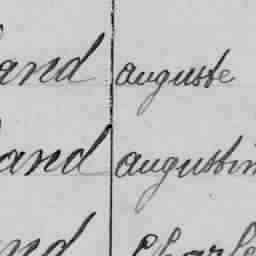 and auguste
and augustin
and Charle